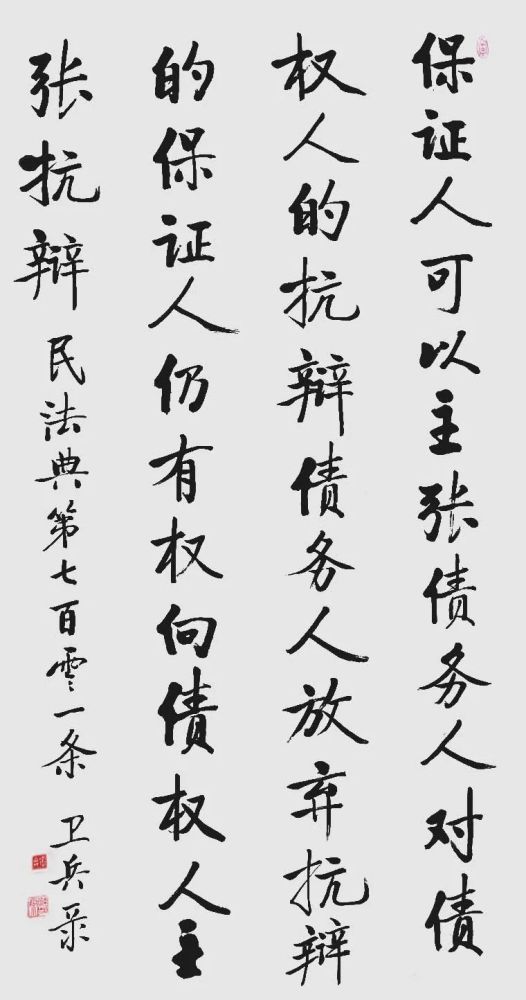 保证人可以主张债务人对债
权人的抗辩债务人放弃抗辩
的保证人仍有权向债权人主
张抗辩 民法典第七百零一条 卫兵录